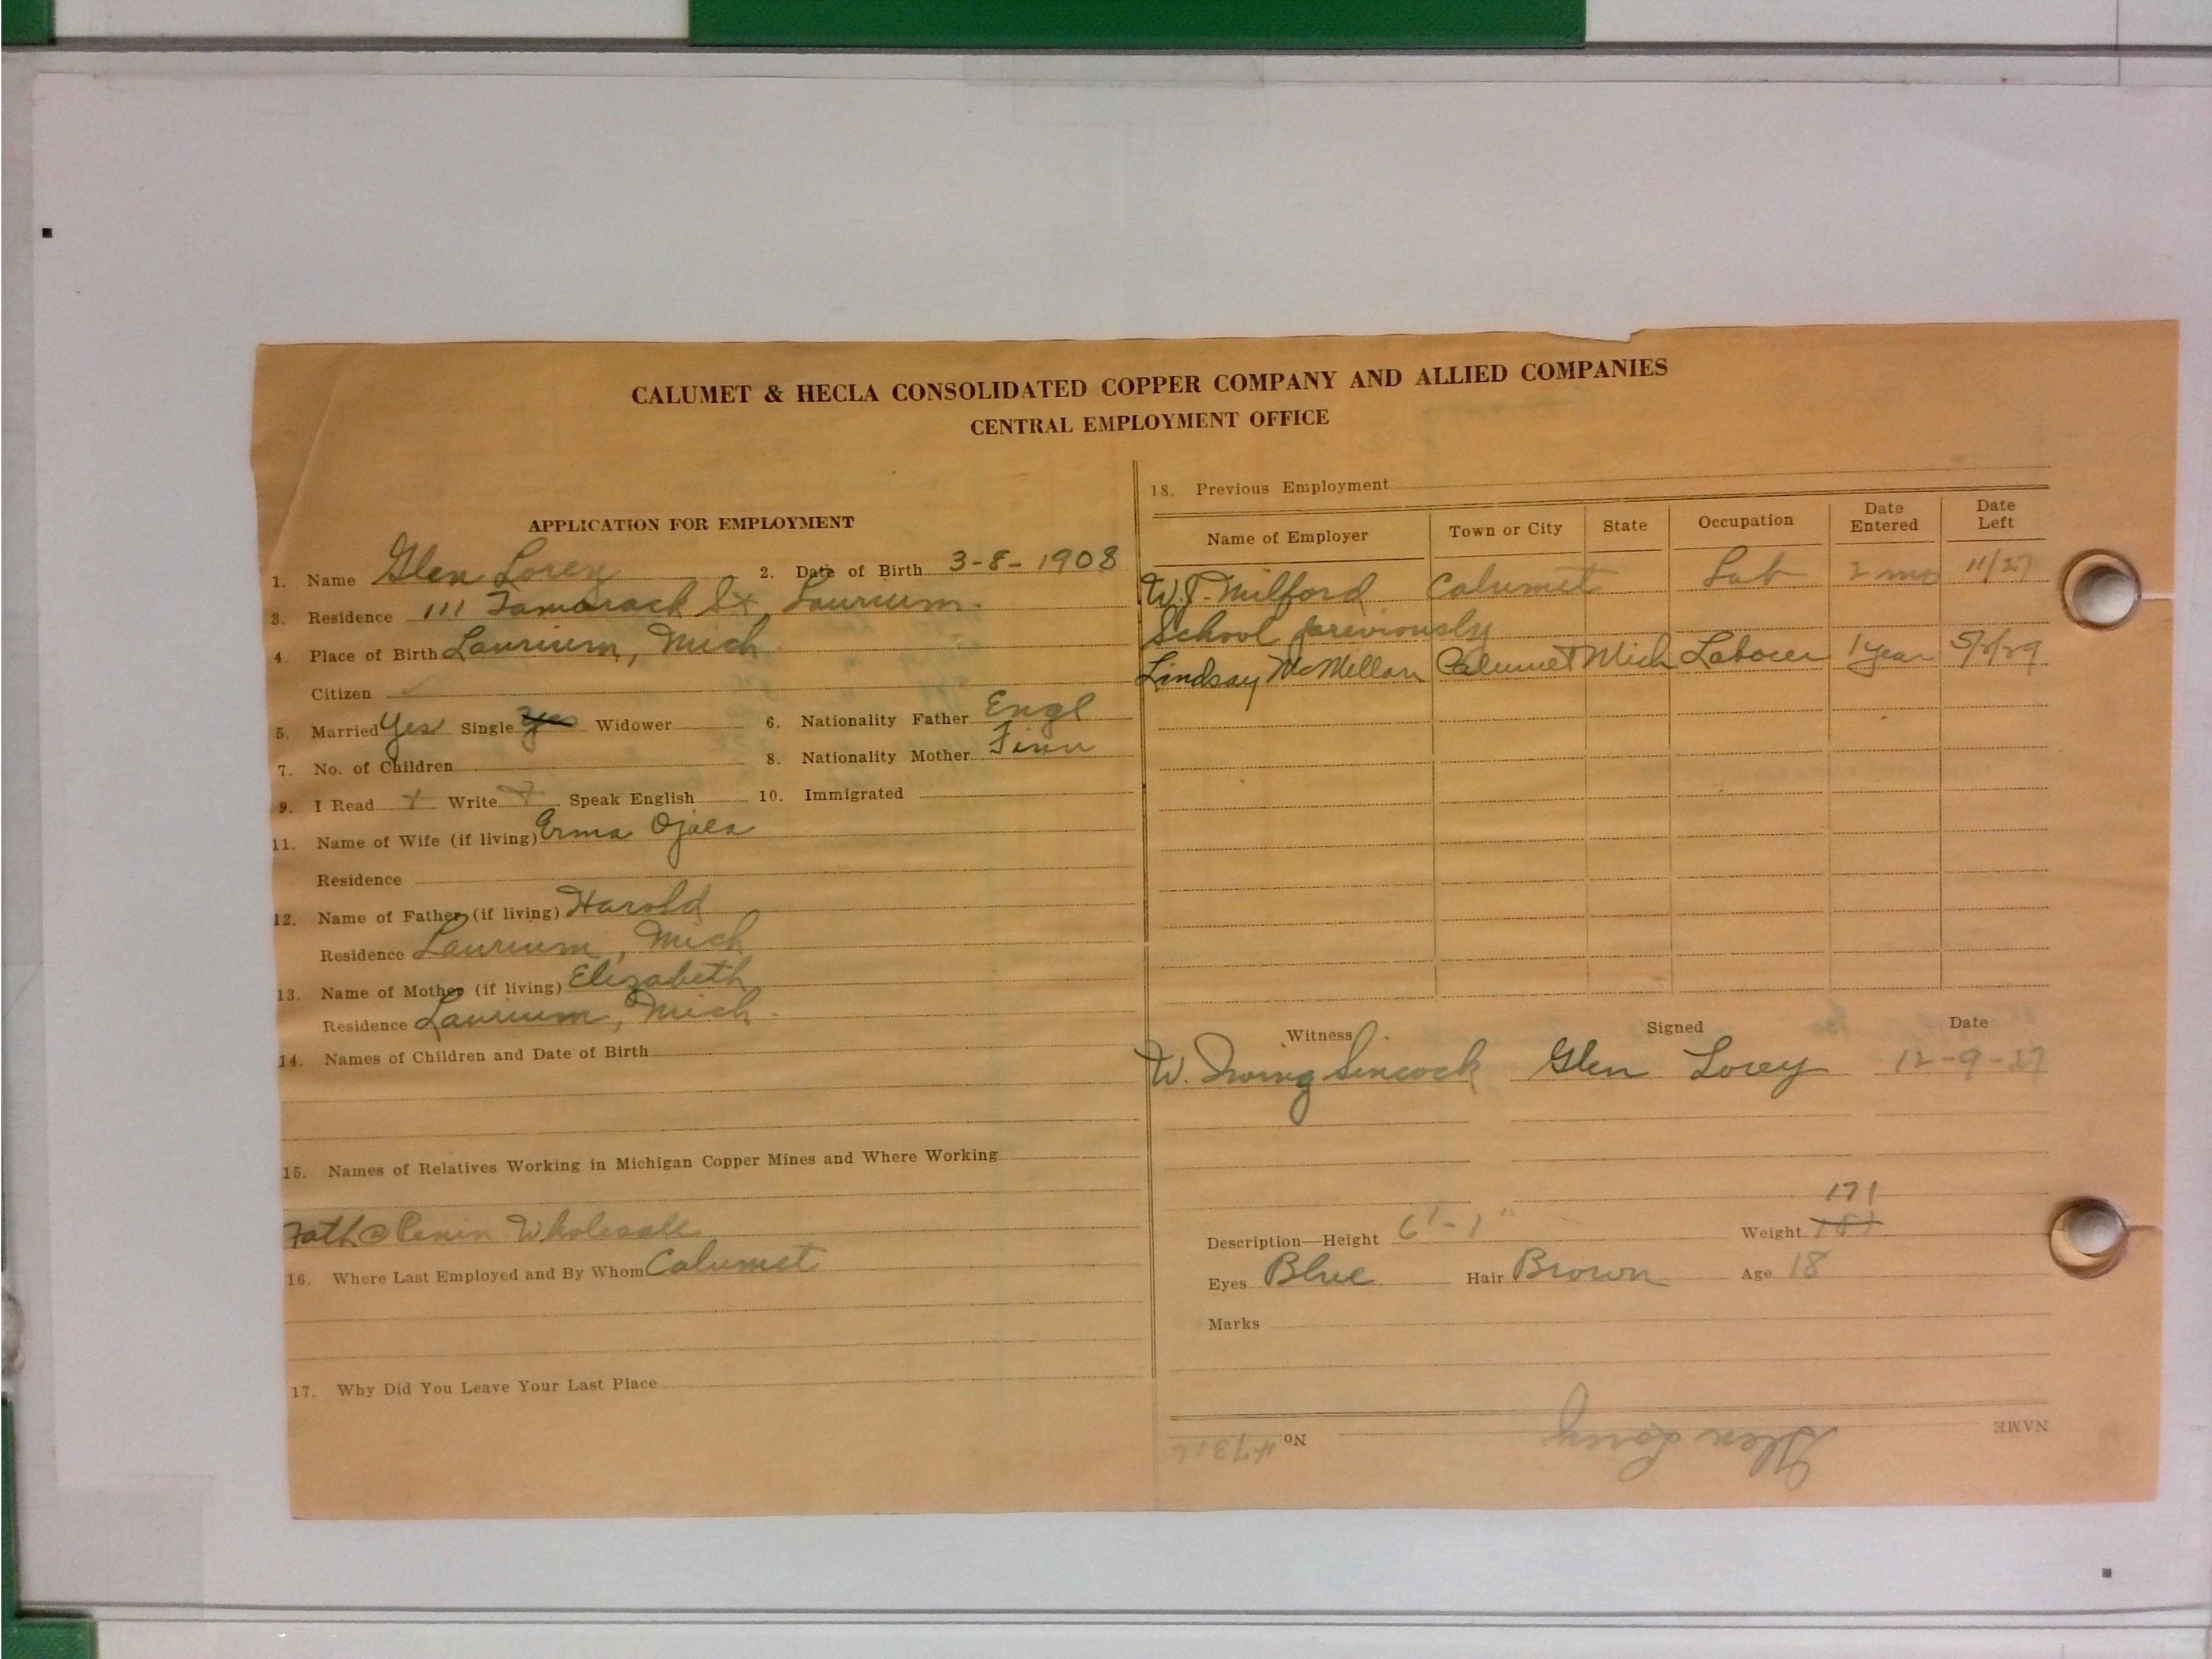 CALUMET & HECLA CONSOLIDATED COPPER COMPANY AND ALLIED COMPANIES
CENTRAL EMPLOYMENT OFFICE
APPLICATION FOR EMPLOYMENT
1. Name Glen Lorey 2. Date of Birth 3-8-1908
3. Residence 111 Tamarack St, Laurium.
4. Place of Birth Laurium, Mich.
Citizen ✓
5. Married Yes Single Yes Widower 6. Nationality Father Engl
7. No. of Children 8. Nationality Mother Finn
9. I Read + Write + Speak English 10. Immigrated
11. Name of Wife (if living) Erma Ojala
Residence
12. Name of Father (if living) Harold
Residence Laurium, Mich
13. Name of Mother (if living) Elizabeth
Residence Laurium, Mich.
14. Names of Children and Date of Birth
15. Names of Relatives Working in Michigan Copper Mines and Where Working
Fath @ Wholesale
16. Where Last Employed and By Whom Calumet
17. Why Did You Leave Your Last Place
18. Previous Employment
Name of Employer Town or City State Occupation Date Entered Date Left
Milford Calumet Lab 2 mo 11/27
School previously
Lindsay McMillan Calumet Mich Laborer 1 year 5/1/29
Witness Signed Date
W. Irving Sincock Glen Lorey 12-9-27
171
Description—Height 6'-1" Weight 181
Eyes Blue Hair Brown Age 18
Marks
NAME Glen Lorey No. #7316